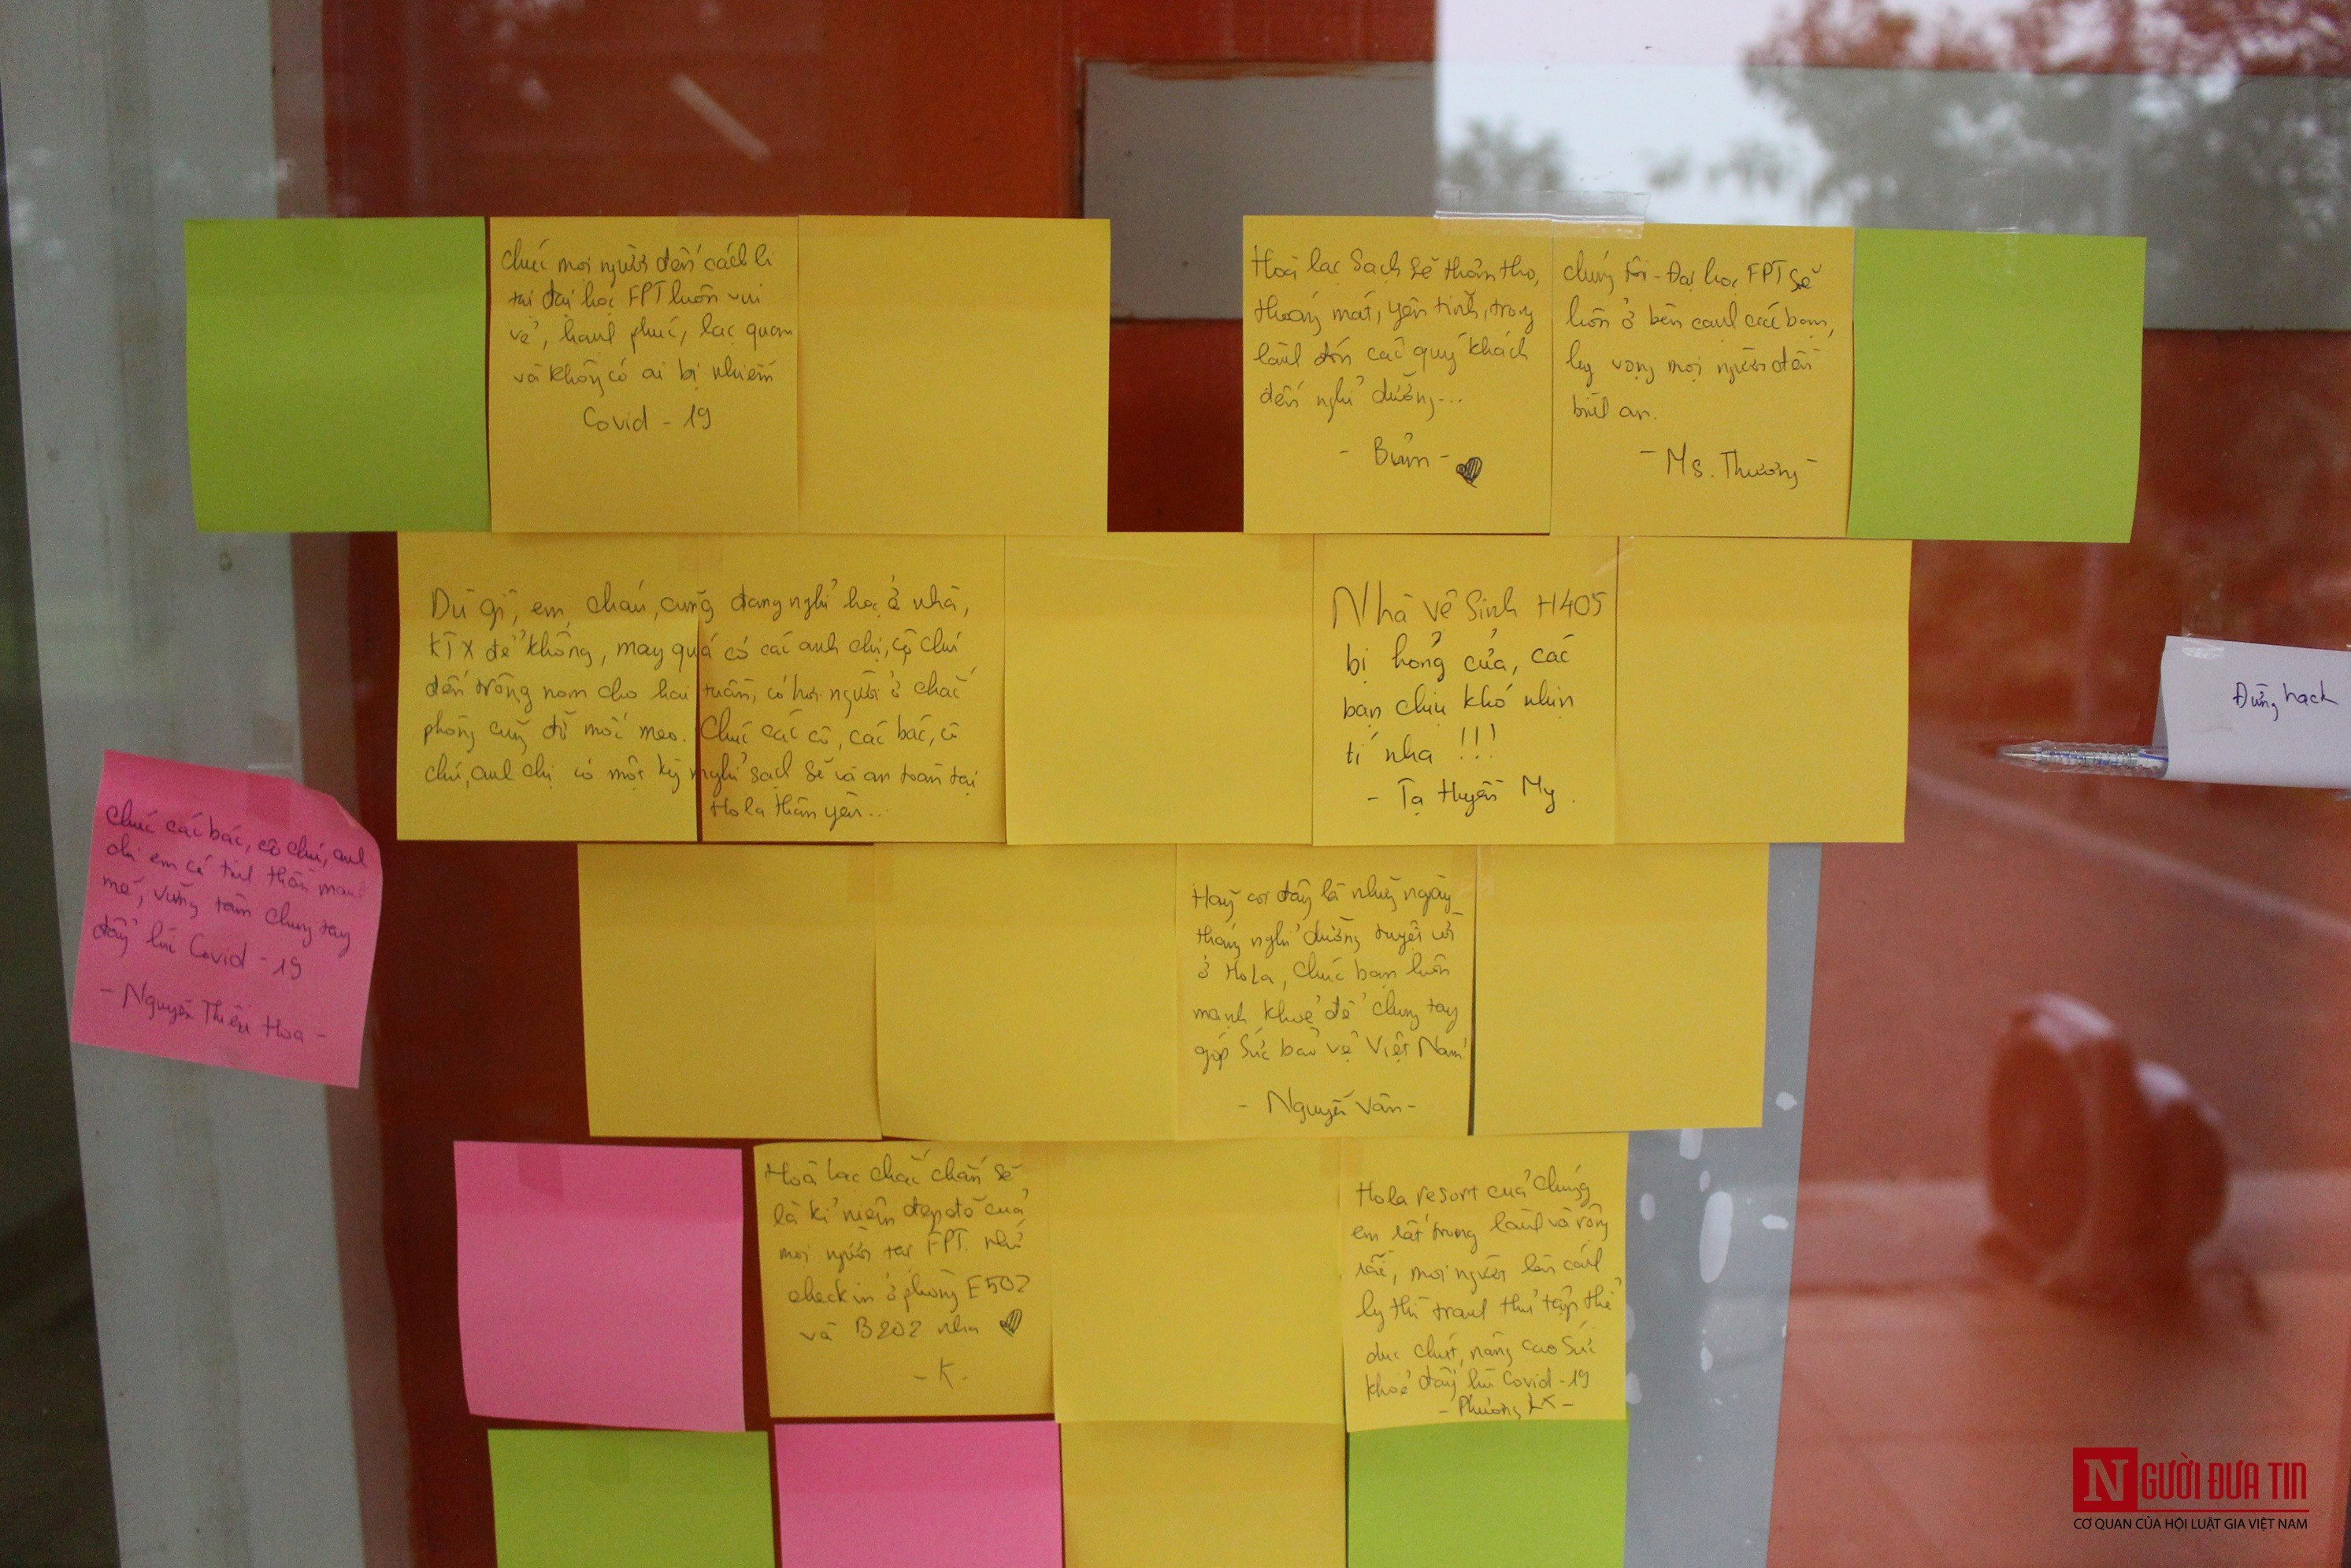 Chúc mọi người đến cách li
tại đại học FPT luôn vui
vẻ, hạnh phúc, lạc quan
và không có ai bị nhiễm
Covid - 19
Hoà lạc sạch sẽ thơm tho,
thoáng mát, yên tĩnh, trong
lành đón các quý khách
đến nghỉ dưỡng...
- Bủm -
chúng tôi - Đại học FPT sẽ
luôn ở bên cạnh các bạn,
hy vọng mọi người đến
bình an.
- Ms. Thương -
Dù gì, em, cháu, cũng đang nghỉ học ở nhà,
KTX để không, may quá có các anh chị, cô chú
đến trông nom cho hai tuần, có hơi người ở chắc
phòng cũng đỡ mốc meo. Chúc các cô, các bác, cô
chú, anh chị có một kỳ nghỉ sạch sẽ và an toàn tại
Hola thân yên...
Nhà vệ sinh H405
bị hỏng cửa, các
bạn chịu khó nhịn
tí nha !!!
- Tạ Huyền My.
Đừng hack
Chúc các bác, cô chú, anh
chị em có tinh thần mạnh
mẽ, vững tâm chung tay
đẩy lùi Covid - 19
- Nguyễn Thiên Hoa -
Hãy coi đây là những ngày
tháng nghỉ dưỡng tuyệt vời
ở HoLa, chúc bạn luôn
mạnh khoẻ để chung tay
góp sức bảo vệ Việt Nam
- Nguyễn Vân -
Hoà lạc chắc chắn sẽ
là kỉ niệm đẹp đẽ của
mọi người tại FPT. nhớ
check in ở phòng E502
và B202 nha
- K -
Hola resort của chúng
em rất trong lành và rộng
rãi, mọi người lên cách
ly thì tranh thủ tập thể
dục chút, nâng cao sức
khoẻ đẩy lùi Covid - 19
- Phương LK -
NGƯỜI ĐƯA TIN
CƠ QUAN CỦA HỘI LUẬT GIA VIỆT NAM